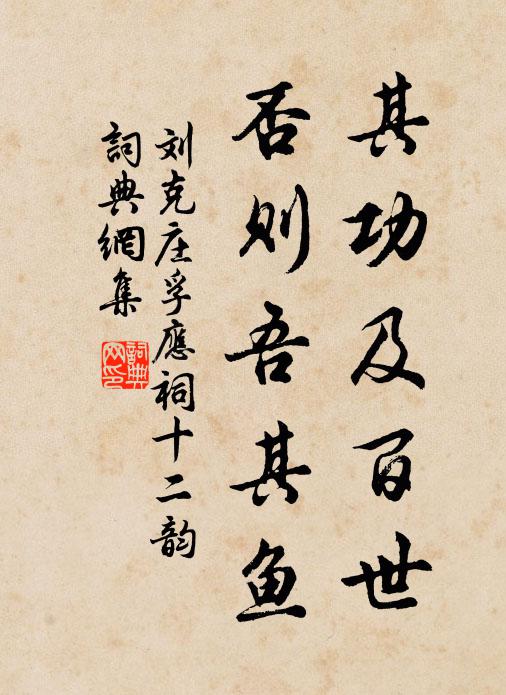 其功及百世
否则吾其鱼
刘克庄孚應祠十二韵
詞典網集
詞典网印